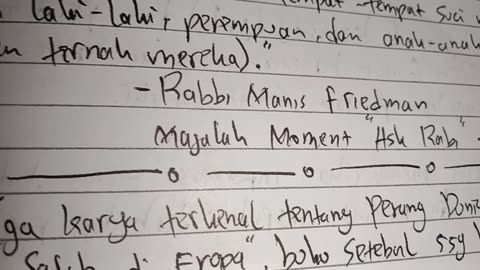 laki-laki, perempuan, dan anak-anak
ternak mereka)."
- Rabbi Manis Friedman
Majalah Moment "Ask Rabi"
karya terkenal tentang Perang
di Eropa", buku setebal 559